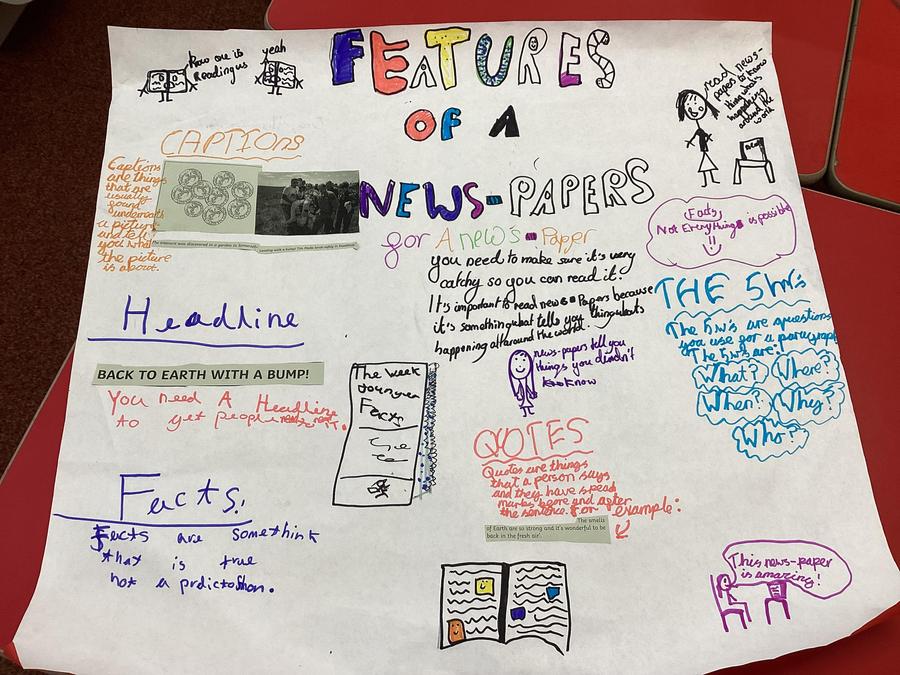 FEATURES
OF A
NEWS-PAPERS
yeah
CAPTIONS
Captions
are things
that are
usually
found
underneath
a picture
and tell
you what
the picture
is about.
for A news-Paper
you need to make sure it's very
catchy so you can read it!
It's important to read news-Papers because
it's something that tells you things what's
happening all around the world!
news-papers tell you
things you diendn't
know
read news-
papers to know
what's
happening
around the
world
Facts
Not Everything is possible
!!
THE 5W's
The 5w's are questions
you use for a paragraph
The 5w's are:
What? Where?
When? Why?
Who?
Headline
BACK TO EARTH WITH A BUMP!
You need A Headline
to get people
The week
Junior
Facts
QUOTES
Quotes are things
that a person says
and they have speach
marks before and after
the sentence. For example:
The smells
of Earth are so strong and it's wonderful to be
back in the fresh air'.
Facts.
Facts are somethink
that is true
not a prdictoshon.
This news-paper
is amazing!